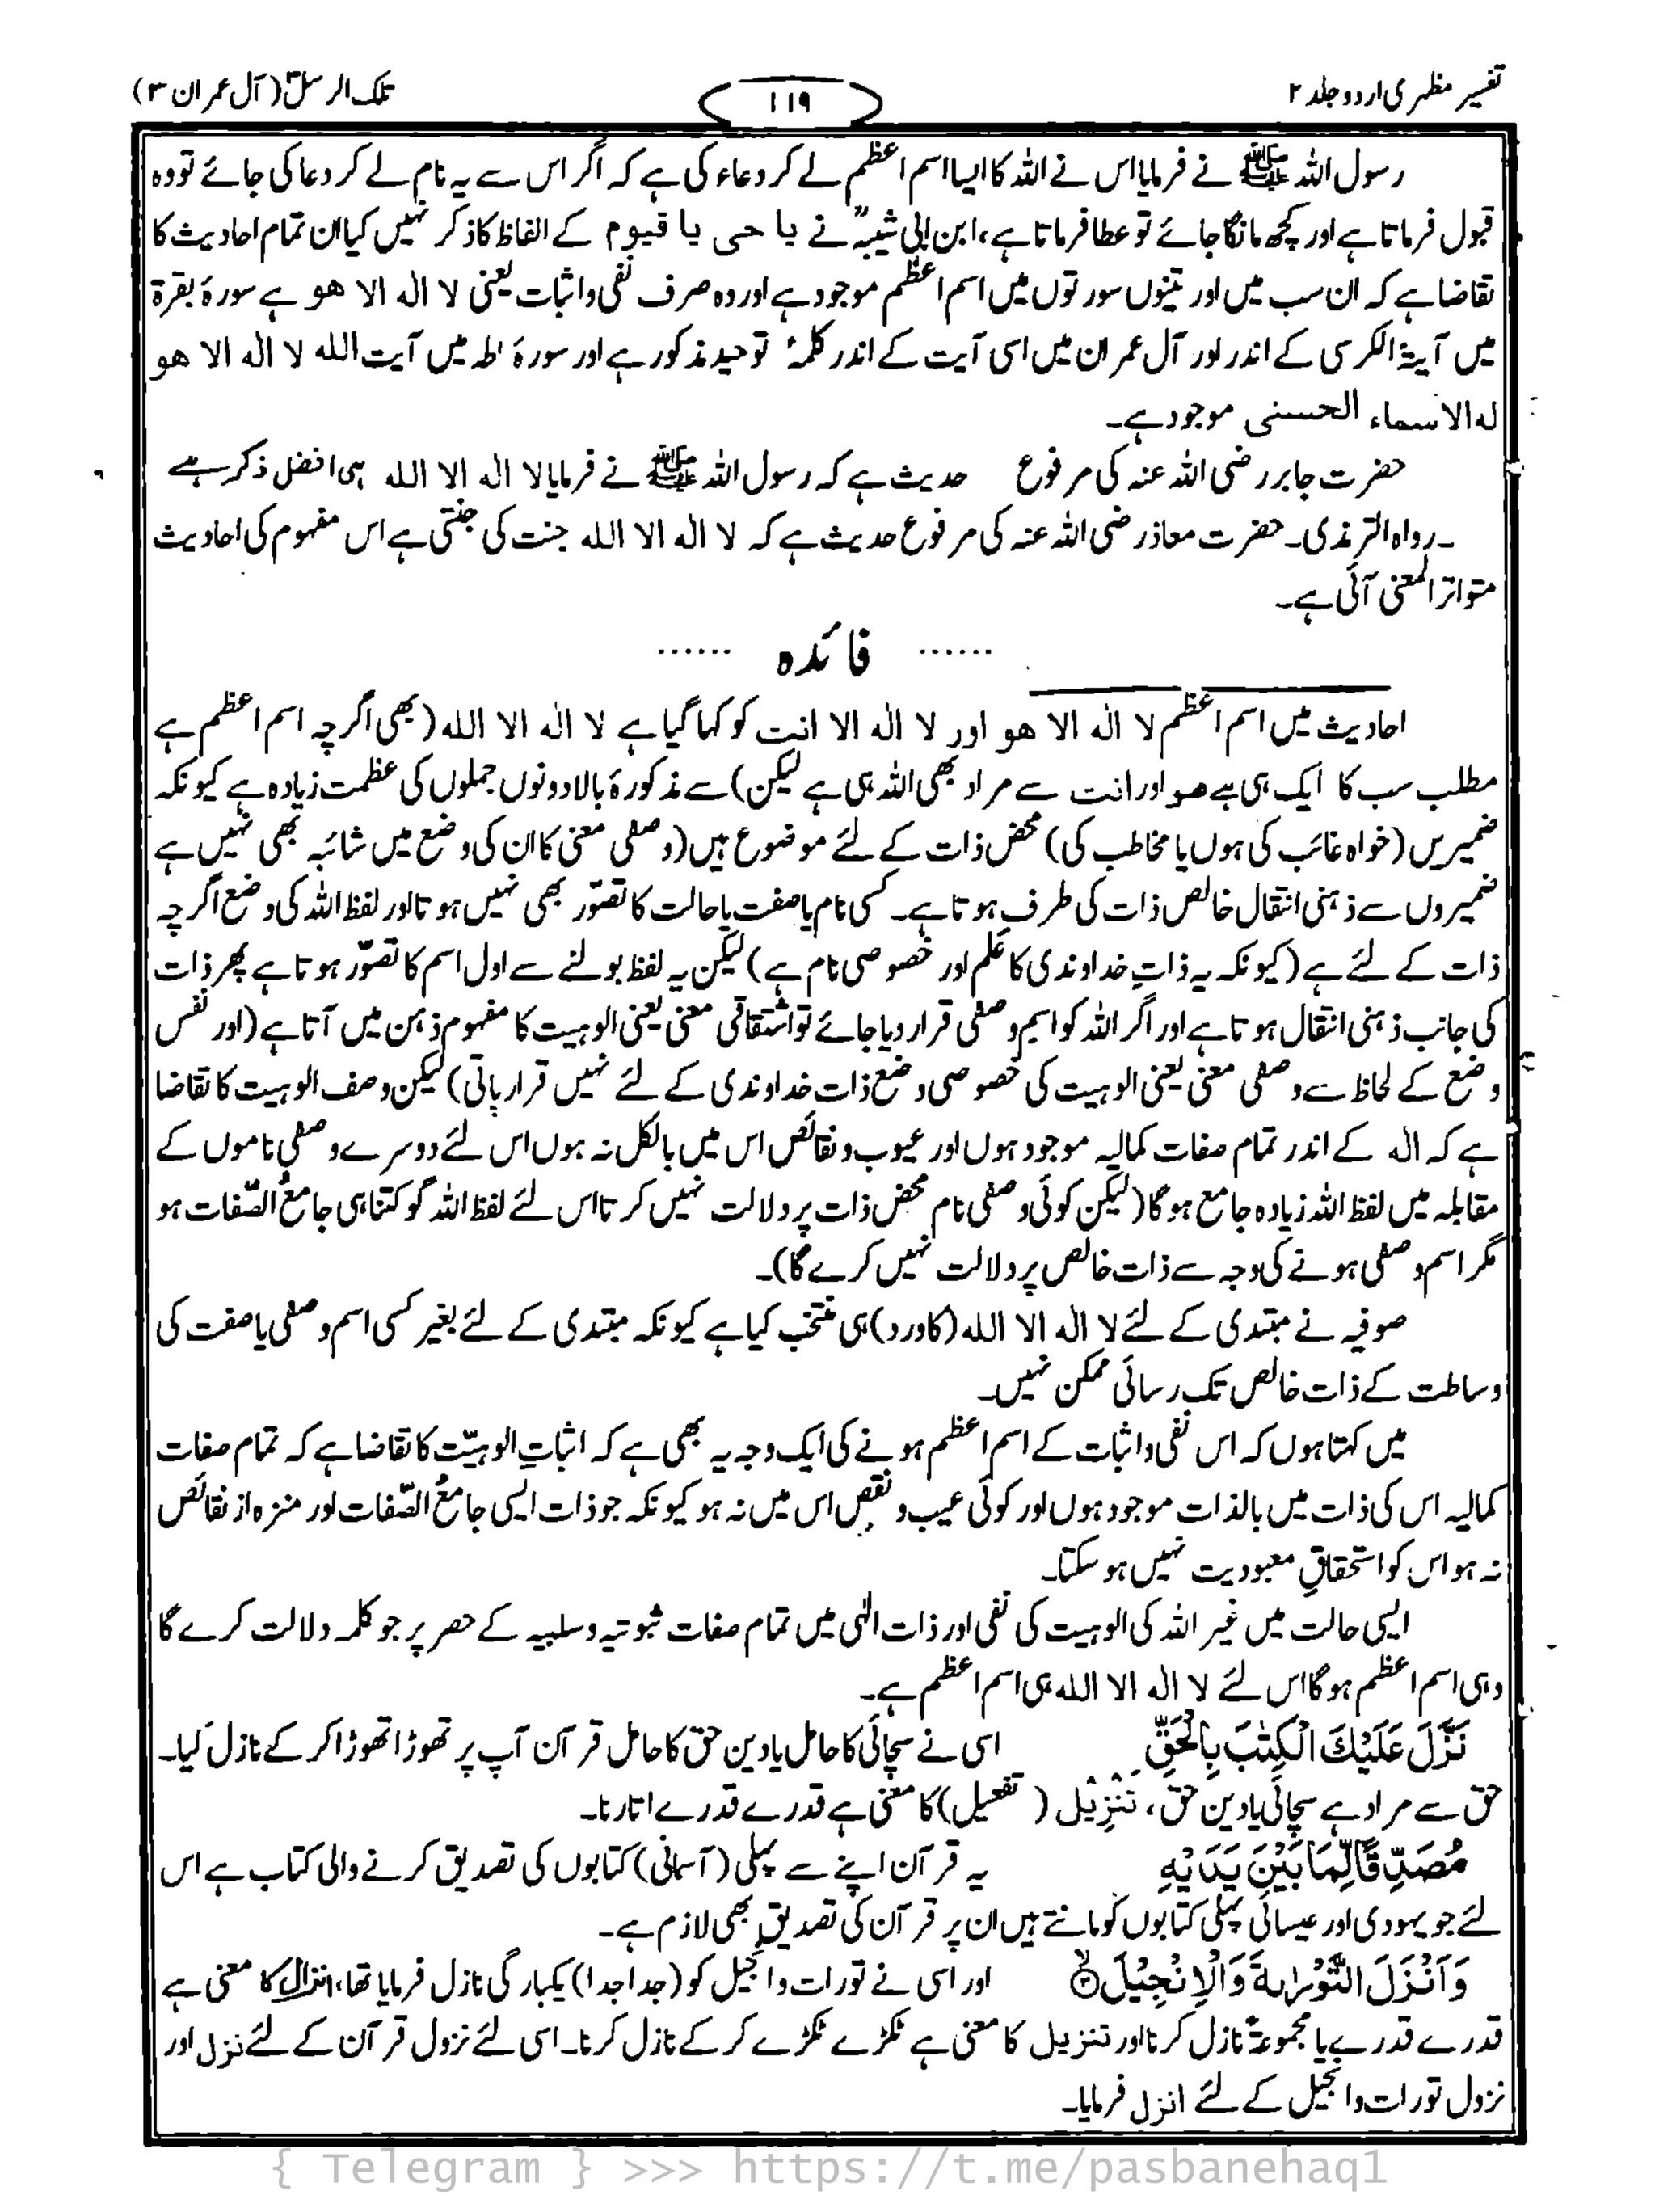 تفسیر مظہری اردو جلد ۲
۱۱۹
تلک الرسل (آل عمران ۳)
رسول اللہ ﷺ نے فرمایا اس نے اللہ کا ایسا اسم اعظم لے کر دعاء کی ہے کہ اگر اس سے یہ نام لے کر دعا کی جائے تو وہ
قبول فرماتا ہے اور کچھ مانگا جائے تو عطا فرماتا ہے، ابن ابی شیبہؒ نے یا حی یا قیوم کے الفاظ کا ذکر نہیں کیا ان تمام احادیث کا
تقاضا ہے کہ ان سب میں اور تینوں سورتوں میں اسم اعظم موجود ہے اور وہ صرف نفی و اثبات یعنی لا الٰہ الا ھو ہے سورۂ بقرۃ
میں آیۃ الکرسی کے اندر اور آل عمران میں اسی آیت کے اندر کلمۂ توحید مذکور ہے اور سورۂ طہ میں آیت اللہ لا الٰہ الا ھو
لہ الاسماء الحسنی موجود ہے۔
حضرت جابر رضی اللہ عنہ کی مرفوع حدیث ہے کہ رسول اللہ ﷺ نے فرمایا لا الٰہ الا اللہ ہی افضل ذکر ہے
۔رواہ الترمذی۔ حضرت معاذ رضی اللہ عنہ کی مرفوع حدیث ہے کہ لا الٰہ الا اللہ جنت کی جنتی ہے اس مفہوم کی احادیث
متواتر المعنی آئی ہے۔
...... فائدہ ......
احادیث میں اسم اعظم لا الٰہ الا ھو اور لا الٰہ الا انت کو کہا گیا ہے لا الٰہ الا اللہ (بھی اگرچہ اسم اعظم ہے
مطلب سب کا ایک ہی ہے ھو اور انت سے مراد بھی اللہ ہی ہے لیکن) سے مذکورۂ بالا دونوں جملوں کی عظمت زیادہ ہے کیونکہ
ضمیریں (خواہ غائب کی ہوں یا مخاطب کی) محض ذات کے لئے موضوع ہیں (وصفی معنی کا ان کی وضع میں شائبہ بھی نہیں ہے
ضمیروں سے ذہنی انتقال خالص ذات کی طرف ہوتا ہے۔ کسی نام یا صفت یا حالت کا تصوّر بھی نہیں ہوتا اور لفظ اللہ کی وضع اگرچہ
ذات کے لئے ہے (کیونکہ یہ ذاتِ خداوندی کا عَلم اور خصوصی نام ہے) لیکن یہ لفظ بولنے سے اول اسم کا تصوّر ہوتا ہے پھر ذات
کی جانب ذہنی انتقال ہوتا ہے اور اگر اللہ کو اسم وصفی قرار دیا جائے تو اشتقاقی معنی یعنی الوہیت کا مفہوم ذہن میں آتا ہے (اور نفس
وضع کے لحاظ سے وصفی معنی یعنی الوہیت کی خصوصی وضع ذات خداوندی کے لئے نہیں قرار پاتی) لیکن وصف الوہیت کا تقاضا
ہے کہ الٰہ کے اندر تمام صفات کمالیہ موجود ہوں اور عیوب و نقائص اس میں بالکل نہ ہوں اس لئے دوسرے وصفی ناموں کے
مقابلہ میں لفظ اللہ زیادہ جامع ہوگا (لیکن کوئی وصفی نام محض ذات پر دلالت نہیں کرتا اس لئے لفظ اللہ گو کتنا ہی جامعُ الصّفات ہو
مگر اسم وصفی ہونے کی وجہ سے ذات خالص پر دلالت نہیں کرے گا)۔
صوفیہ نے مبتدی کے لئے لا الٰہ الا اللہ (کا ورد) ہی منتخب کیا ہے کیونکہ مبتدی کے لئے بغیر کسی اسم وصفی یا صفت کی
وساطت کے ذات خالص تک رسائی ممکن نہیں۔
میں کہتا ہوں کہ اس نفی و اثبات کے اسم اعظم ہونے کی ایک وجہ یہ بھی ہے کہ اثباتِ الوہیّت کا تقاضا ہے کہ تمام صفات
کمالیہ اس کی ذات میں بالذات موجود ہوں اور کوئی عیب و نقص اس میں نہ ہو کیونکہ جو ذات ایسی جامعُ الصّفات اور منزہ از نقائص
نہ ہو اس کو استحقاقِ معبودیت نہیں ہو سکتا۔
ایسی حالت میں غیر اللہ کی الوہیت کی نفی اور ذات الٰہی میں تمام صفات ثبوتیہ و سلبیہ کے حصر پر جو کلمہ دلالت کرے گا
وہی اسم اعظم ہوگا اس لئے لا الٰہ الا اللہ ہی اسم اعظم ہے۔
نَزَّلَ عَلَيْكَ الْكِتٰبَ بِالْحَقِّ اسی نے سچائی کا حامل یا دین حق کا حامل قرآن آپ پر تھوڑا تھوڑا کر کے نازل کیا۔
حق سے مراد ہے سچائی یا دین حق، تَنْزِیْل (تفعیل) کا معنی ہے قدرے قدرے اتارنا۔
مُصَدِّقًا لِّمَا بَيْنَ يَدَيْهِ یہ قرآن اپنے سے پہلی (آسمانی) کتابوں کی تصدیق کرنے والی کتاب ہے اس
لئے جو یہودی اور عیسائی پہلی کتابوں کو مانتے ہیں ان پر قرآن کی تصدیق بھی لازم ہے۔
وَاَنْزَلَ التَّوْرٰىةَ وَالْاِنْجِيْلَ ۝۳ اور اسی نے تورات و انجیل کو (جدا جدا) یکبارگی نازل فرمایا تھا، انزال کا معنی ہے
قدرے قدرے یا مجموعۃً نازل کرنا اور تنزیل کا معنی ہے ٹکڑے ٹکڑے کر کے نازل کرنا۔ اسی لئے نزول قرآن کے لئے نزل اور
نزول تورات و انجیل کے لئے انزل فرمایا۔
{ Telegram } >>> https://t.me/pasbanehaq1